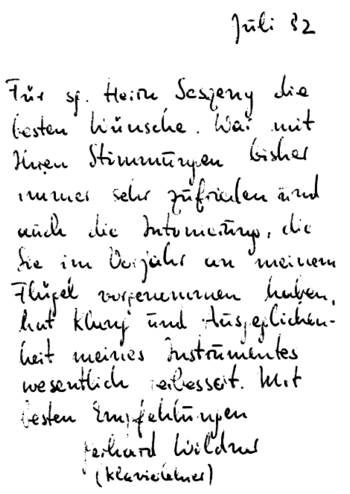 Juli 82
Für sg. Herrn Seszeny die
besten Wünsche. War mit
Ihren Stimmungen bisher
immer sehr zufrieden und
auch die Intonierung, die
Sie im Vorjahr an meinem
Flügel vorgenommen haben,
hat Klang und Ausgeglichen-
heit meines Instrumentes
wesentlich verbessert. Mit
besten Empfehlungen
Gerhard Wildner
(Klavierlehrer)